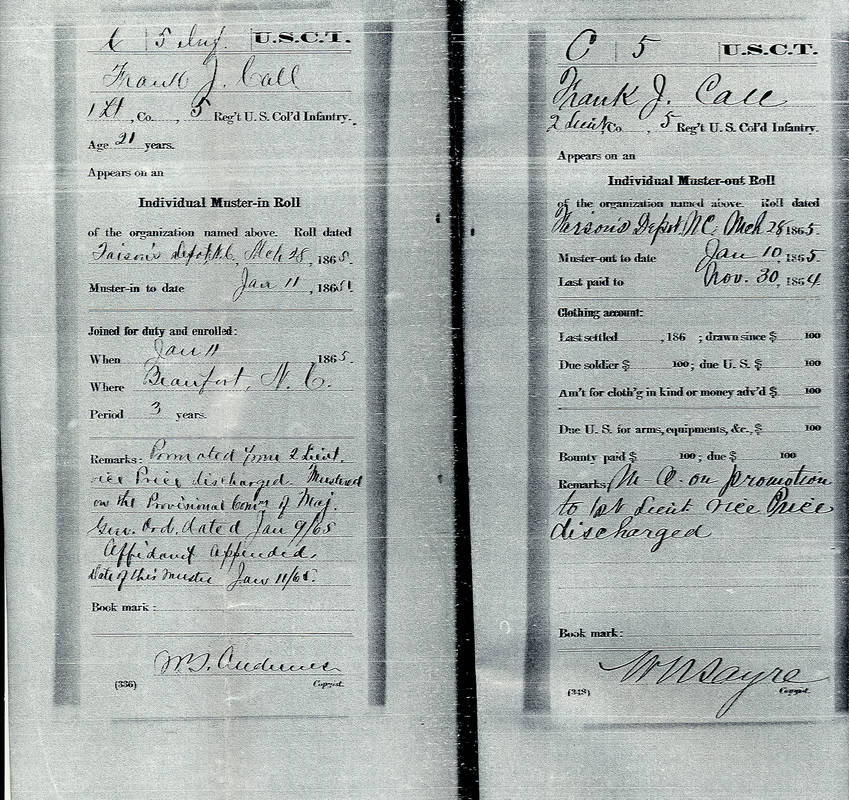 C 5 Inf. U.S.C.T.
Frank J. Call
1 Lt, Co. , 5 Reg't U. S. Col'd Infantry.
Age 21 years.
Appears on an
Individual Muster-in Roll
of the organization named above. Roll dated
Faison's Depot, N.C., Mch 28, 1865.
Muster-in to date Jan 11, 1865.
Joined for duty and enrolled:
When Jan 11 1865.
Where Beaufort, N. C.
Period 3 years.
Remarks: Promoted from 2 Lieut.
vice Price discharged. Mustered
on the Provisional Com'n of Maj.
Gen. Ord. dated Jan 9/65
Affidavit Appended.
Date of this muster Jan 11/65.
Book mark:
(336) Copyist.
C 5 U.S.C.T.
Frank J. Call
2 Lieut, Co. , 5 Reg't U. S. Col'd Infantry.
Appears on an
Individual Muster-out Roll
of the organization named above. Roll dated
Depot, N.C., Mch 28 1865.
Muster-out to date Jan 10, 1865.
Last paid to Nov. 30, 1864.
Clothing account:
Last settled , 186 ; drawn since $ 100
Due soldier $ 100; due U. S. $ 100
Am't for cloth'g in kind or money adv'd $ 100
Due U. S. for arms, equipments, &c., $ 100
Bounty paid $ 100; due $ 100
Remarks: M. O. on promotion
to 1st Lieut vice Price
discharged
Book mark:
W N Sayre
Copyist.